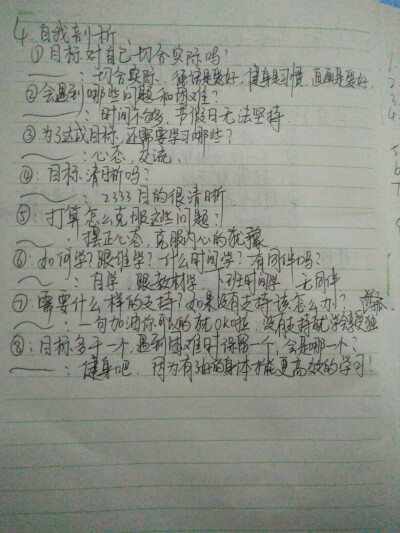 4. 自我剖析.
① 目标对自己切合实际吗?
～～: 切合实际. 是爱好, 健身是习惯, 画画是爱好
② 会遇到哪些问题和困难?
～～: 时间不够, 节假日无法坚持
③ 为了达成目标, 还需要学习哪些?
～～: 心态, 交流、
④: 目标清晰吗?
～～: 2333 目的很清晰
⑤: 打算怎么克服这些问题?
～～: 摆正心态, 克服内心的犹豫
⑥: 如何学? 跟谁学? 什么时间学? 有同伴吗?
～～: 自学, 跟教材学, 下班时间学, 无同伴
⑦: 需要什么样的支持? 如果没有支持该怎么办?
～～: 一句加油你可以的就OK啦, 没有支持就学会孤独
⑧: 目标多于一个, 遇到困难时保留一个, 会是哪一个?
～～: 健身吧, 因为有强的身体才能更高效的学习!